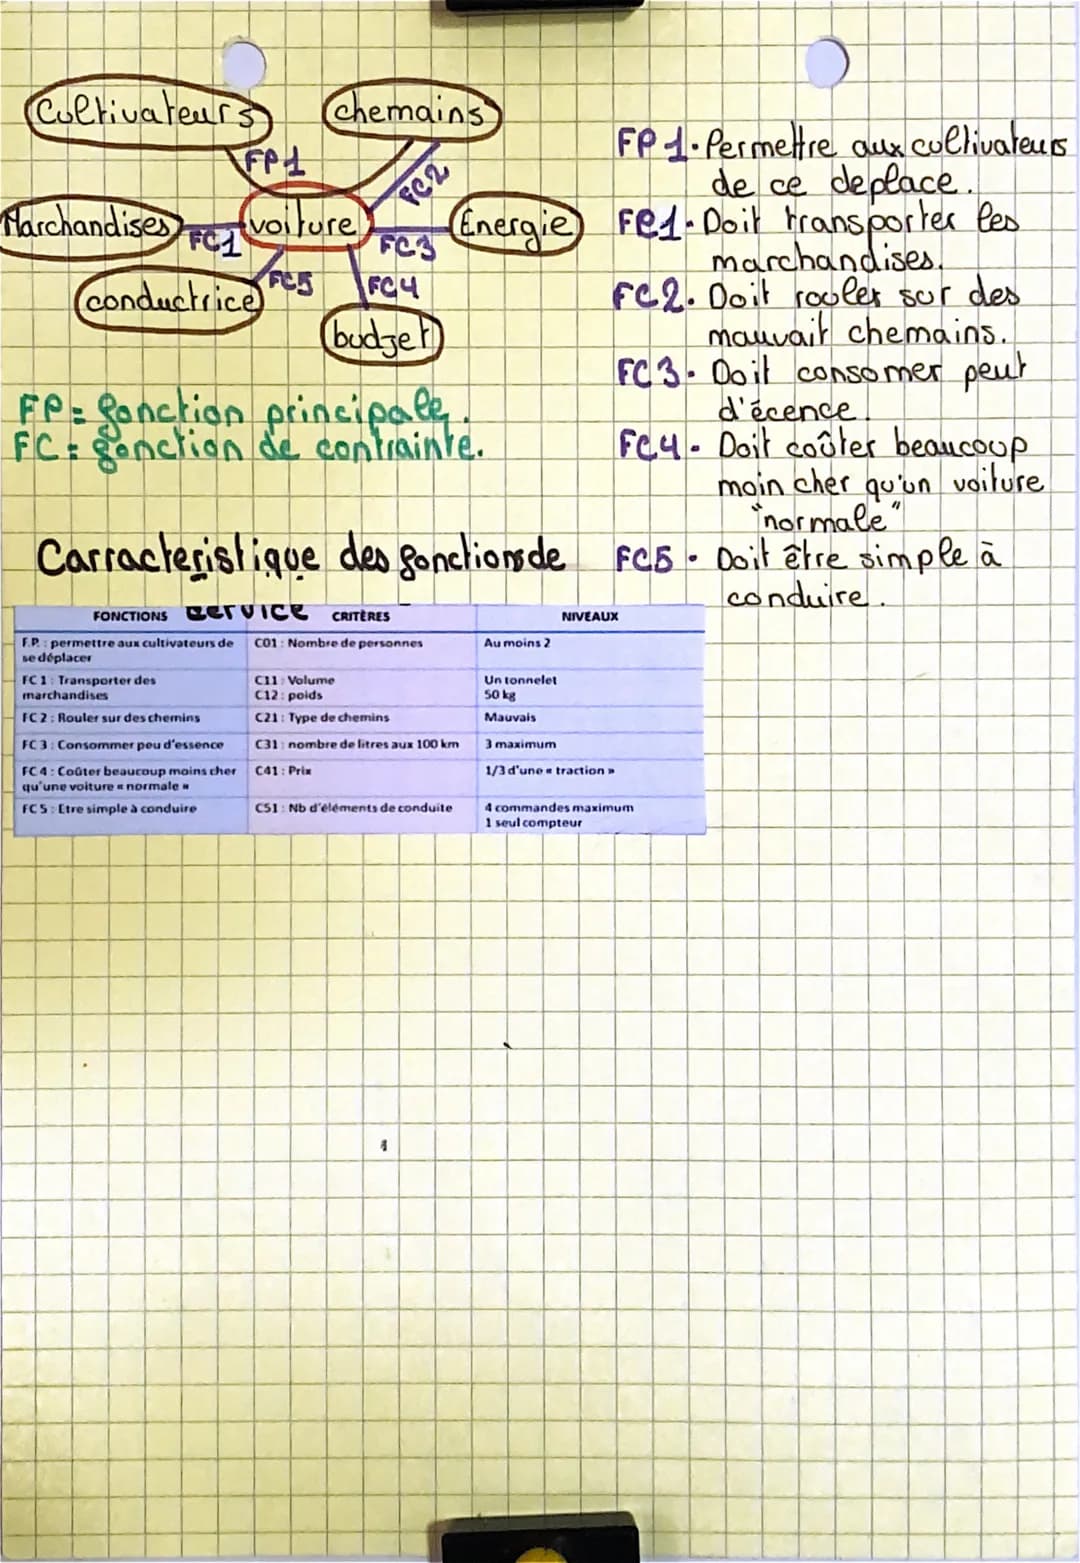 Cultivateurs
chemains
FP1
FC2
Marchandises
FC1
voiture
FC3
Énergie
FC5
FC4
conductrice
budget
FP = fonction principale.
FC = fonction de contrainte.
FP1. Permettre aux cultivateurs
de ce deplace.
FC1. Doit transporter les
marchandises.
FC2. Doit rouler sur des
mauvait chemains.
FC3. Doit consomer peut
d'écence.
FC4. Doit coûter beaucoup
moin cher qu'un voiture
"normale"
FC5. Doit être simple à
conduire.
Carracteristique des fonctions de
service
FONCTIONS CRITÈRES NIVEAUX
F.P. : permettre aux cultivateurs de C01 : Nombre de personnes Au moins 2
se déplacer
FC 1 : Transporter des C11 : Volume Un tonnelet
marchandises C12 : poids 50 kg
FC 2 : Rouler sur des chemins C21 : Type de chemins Mauvais
FC 3 : Consommer peu d'essence C31 : nombre de litres aux 100 km 3 maximum
FC 4 : Coûter beaucoup moins cher C41 : Prix 1/3 d'une « traction »
qu'une voiture « normale »
FC 5 : Etre simple à conduire C51 : Nb d'éléments de conduite 4 commandes maximum
1 seul compteur